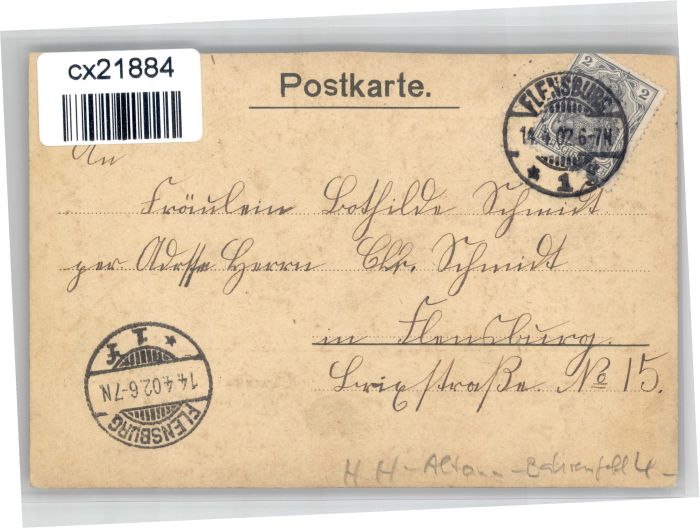 cx21884
Postkarte.
2 2
FLENSBURG
14.4.02.6-7N
* 1
An
Fräulein Bothilde Schmidt
per Adresse Herrn Schmidt
in Flensburg.
straße No 15.
* 1 f
14.4.02.6-7N
FLENSBURG
HH-Altona-Bahrenfeld 4-